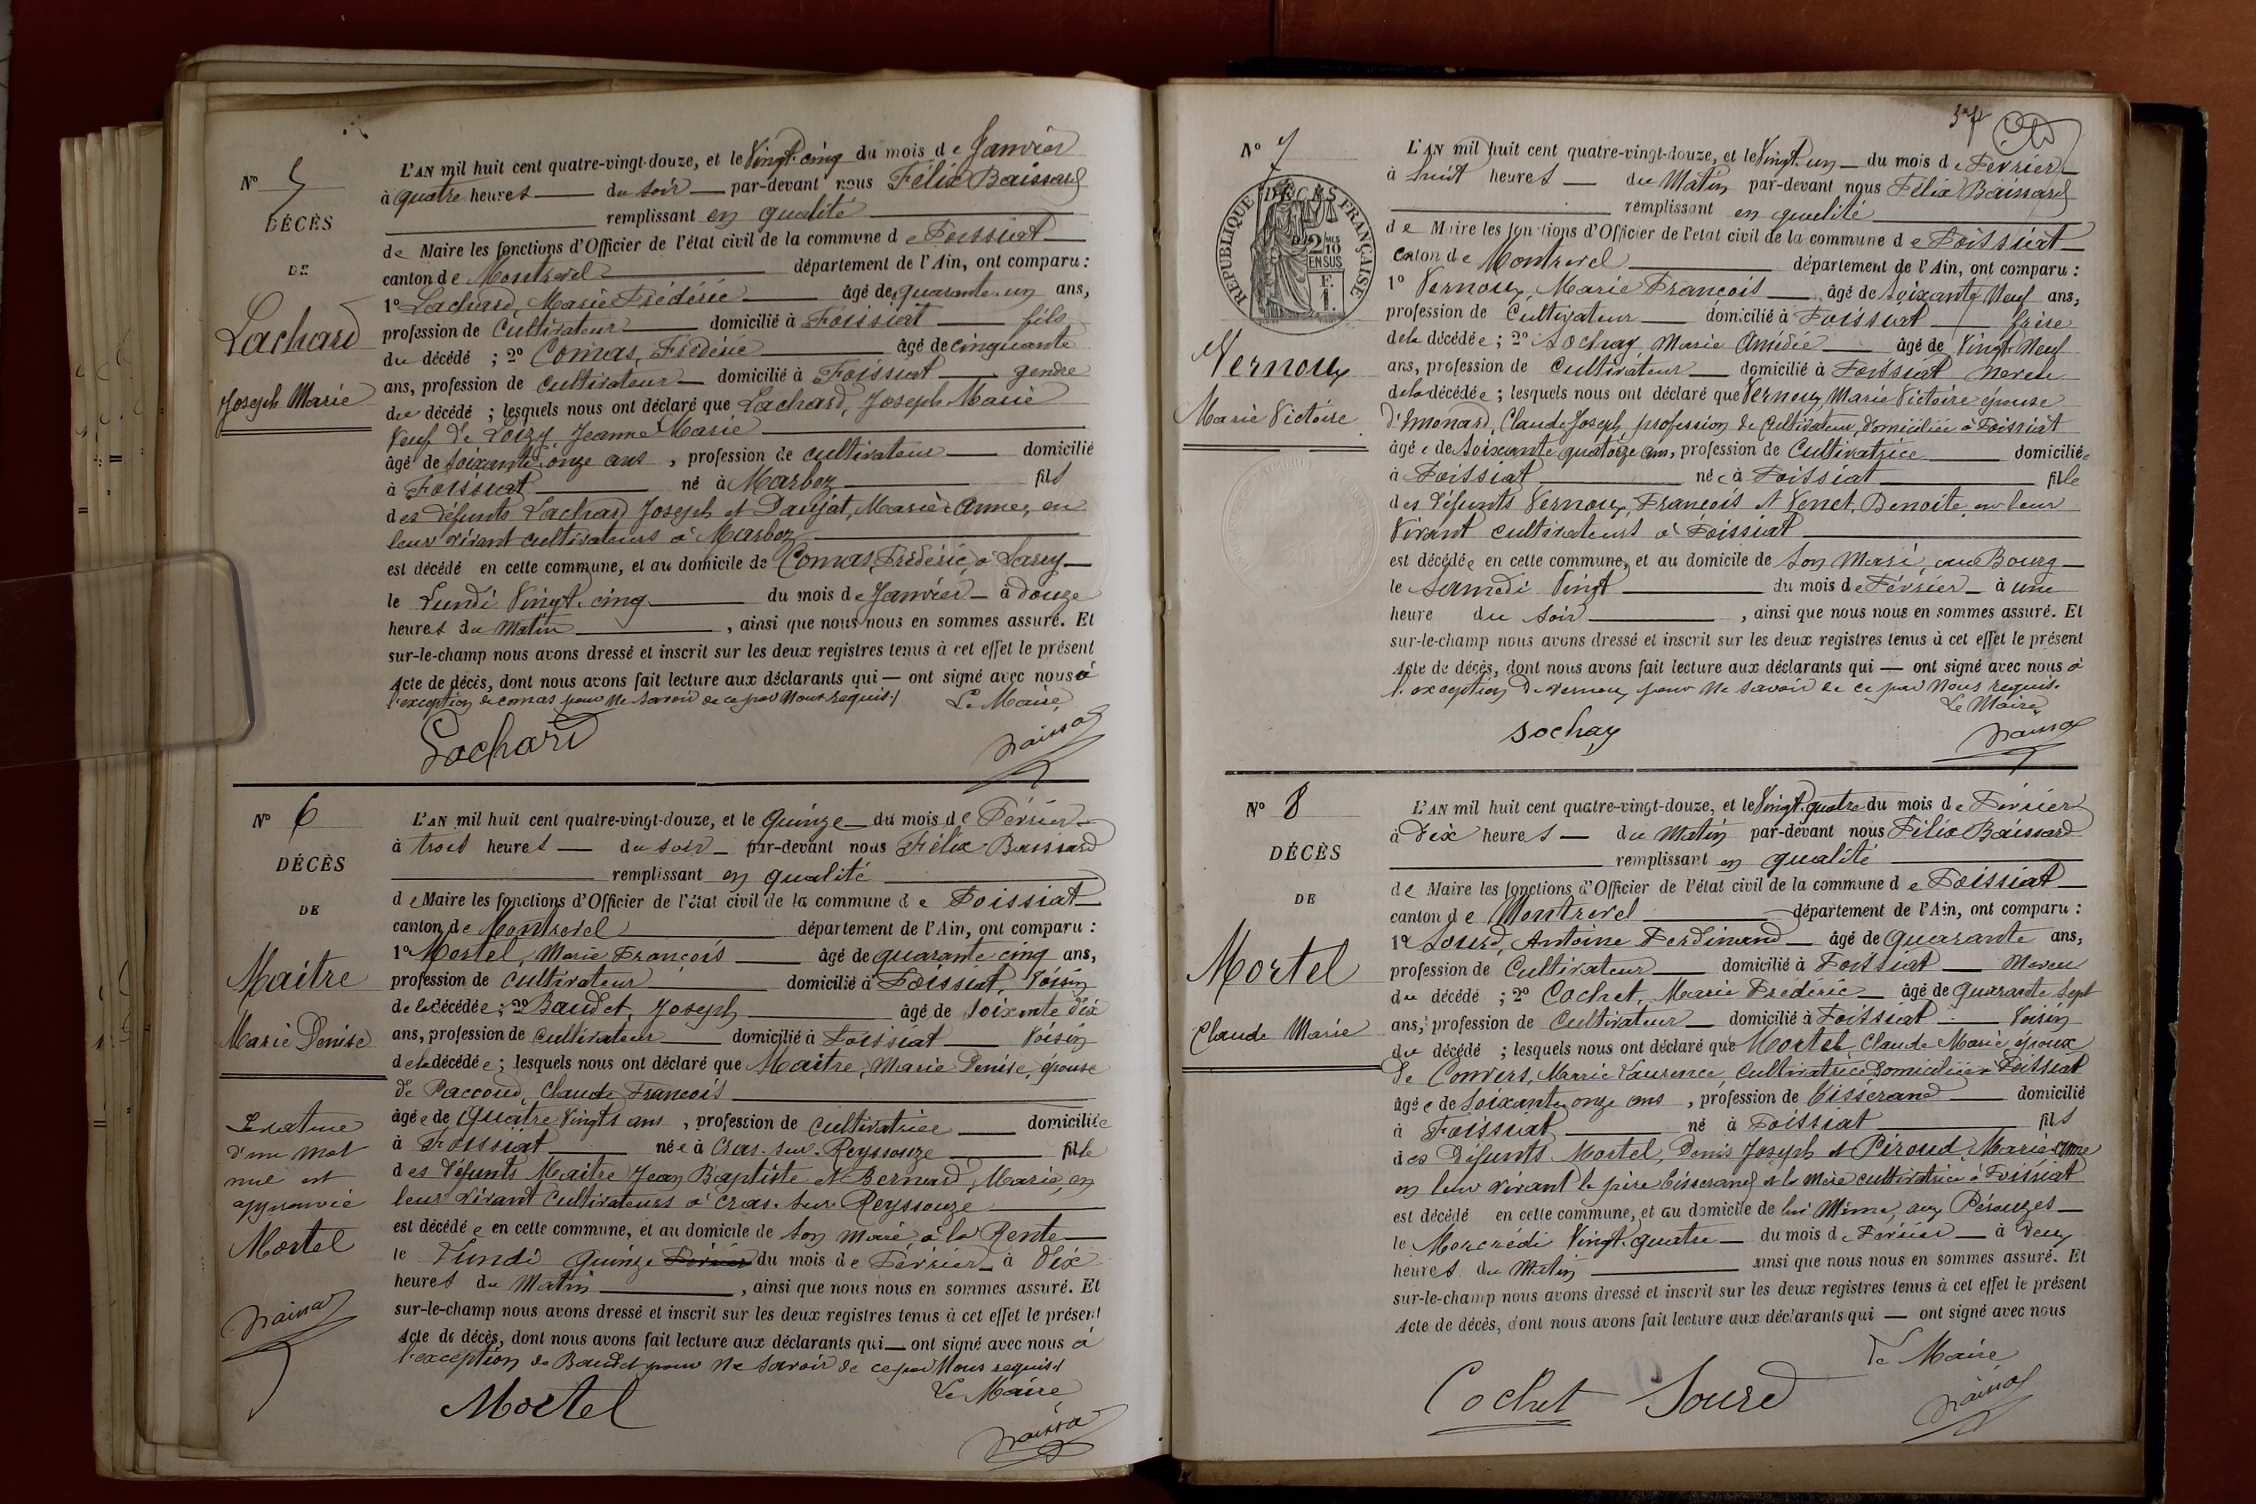 N° 5
DÉCÈS
DE
Lachard
Joseph Marie
L'AN mil huit cent quatre-vingt-douze, et le Vingt-cinq du mois de Janvier
à quatre heures du soir par-devant nous Félix Baissard
remplissant en qualité
de Maire les fonctions d'Officier de l'état civil de la commune de Foissiat
canton de Montrevel département de l'Ain, ont comparu :
1° Lachard, Marie Frédéric âgé de quarante un ans,
profession de Cultivateur domicilié à Foissiat fils
du décédé ; 2° Comas, Frédéric âgé de cinquante
ans, profession de cultivateur domicilié à Foissiat gendre
du décédé ; lesquels nous ont déclaré que Lachard, Joseph Marie
Veuf de Loizy, Jeanne Marie
âgé de soixante onze ans, profession de cultivateur domicilié
à Foissiat né à Marboz fils
des défunts Lachard Joseph et Daujat, Marie Anne, en
leur vivant cultivateurs à Marboz
est décédé en cette commune, et au domicile de Comas Frédéric, à
le Lundi Vingt-cinq du mois de Janvier à douze
heures du Matin, ainsi que nous nous en sommes assuré. Et
sur-le-champ nous avons dressé et inscrit sur les deux registres tenus à cet effet le présent
Acte de décès, dont nous avons fait lecture aux déclarants qui — ont signé avec nous à
l'exception de Comas pour ne savoir de ce par Nous requis.
Le Maire
Lachard
Baissard
N° 6
DÉCÈS
DE
Maitre
Marie Denise
La rature
d'un mot
nul est
approuvée
Mortel
Baissard
L'AN mil huit cent quatre-vingt-douze, et le Quinze du mois de Février
à trois heures du soir par-devant nous Félix Baissard
remplissant en qualité
de Maire les fonctions d'Officier de l'état civil de la commune de Foissiat
canton de Montrevel département de l'Ain, ont comparu :
1° Mortel, Marie François âgé de quarante cinq ans,
profession de cultivateur domicilié à Foissiat, Voisin
de la décédée ; 2° Baudet, Joseph âgé de soixante dix
ans, profession de cultivateur domicilié à Foissiat Voisin
de la décédée ; lesquels nous ont déclaré que Maitre, Marie Denise, épouse
de Paccoud, Claude François
âgée de Quatre Vingts ans, profession de cultivatrice domiciliée
à Foissiat née à Cras-sur-Reyssouze fille
des défunts Maitre Jean Baptiste et Bernard, Marie, en
leur vivant Cultivateurs à Cras-sur-Reyssouze
est décédée en cette commune, et au domicile de son mari à la Rente
le Lundi Quinze Février du mois de Février à Dix
heures du Matin, ainsi que nous nous en sommes assuré. Et
sur-le-champ nous avons dressé et inscrit sur les deux registres tenus à cet effet le présent
Acte de décès, dont nous avons fait lecture aux déclarants qui — ont signé avec nous à
l'exception de Baudet pour ne savoir de ce par Nous requis
Le Maire
Mortel
Baissard
37
N° 7
DÉCÈS
RÉPUBLIQUE FRANÇAISE
2/10 EN SUS
Vernoux
Marie Victoire
L'AN mil huit cent quatre-vingt-douze, et le Vingt-un du mois de Février
à huit heures du Matin par-devant nous Félix Baissard
remplissant en qualité
de Maire les fonctions d'Officier de l'état civil de la commune de Foissiat
canton de Montrevel département de l'Ain, ont comparu :
1° Vernoux, Marie François âgé de soixante Neuf ans,
profession de Cultivateur domicilié à Foissiat frère
de la décédée ; 2° Sochay Marie Amédée âgé de Vingt-Neuf
ans, profession de Cultivateur domicilié à Foissiat Neveu
de la décédée ; lesquels nous ont déclaré que Vernoux, Marie Victoire épouse
d'Imonard, Claude Joseph profession de Cultivateur, domiciliée à Foissiat
âgée de soixante quatorze ans, profession de Cultivatrice domiciliée
à Foissiat née à Foissiat fille
des défunts Vernoux, François et Venet, Benoite en leur
vivant cultivateurs à Foissiat
est décédée en cette commune, et au domicile de son Mari, au Bourg
le Samedi Vingt du mois de Février à une
heure du soir, ainsi que nous nous en sommes assuré. Et
sur-le-champ nous avons dressé et inscrit sur les deux registres tenus à cet effet le présent
Acte de décès, dont nous avons fait lecture aux déclarants qui — ont signé avec nous à
l'exception de Vernoux pour ne savoir de ce par Nous requis.
Le Maire
Sochay
Baissard
N° 8
DÉCÈS
DE
Mortel
Claude Marie
L'AN mil huit cent quatre-vingt-douze, et le Vingt-quatre du mois de Février
à Dix heures du Matin par-devant nous Félix Baissard
remplissant en qualité
de Maire les fonctions d'Officier de l'état civil de la commune de Foissiat
canton de Montrevel département de l'Ain, ont comparu :
1° Sourd, Antoine Ferdinand âgé de Quarante ans,
profession de Cultivateur domicilié à Foissiat Neveu
du décédé ; 2° Cochet, Marie Frédéric âgé de Quarante Sept
ans, profession de Cultivateur domicilié à Foissiat Voisin
du décédé ; lesquels nous ont déclaré que Mortel, Claude Marie, époux
de Convers, Marie Laurence, Cultivatrice domiciliée à Foissiat
âgé de soixante onze ans, profession de Tisserand domicilié
à Foissiat né à Foissiat fils
des défunts Mortel, Denis Joseph et Piroud, Marie Anne
en leur vivant le père Tisserand et la mère cultivatrice à Foissiat
est décédé en cette commune, et au domicile de lui Même, aux Pérouzes
le Mercredi Vingt-quatre du mois de Février à Deux
heures du Matin ainsi que nous nous en sommes assuré. Et
sur-le-champ nous avons dressé et inscrit sur les deux registres tenus à cet effet le présent
Acte de décès, dont nous avons fait lecture aux déclarants qui — ont signé avec nous
Le Maire
Cochet Sourd
Baissard